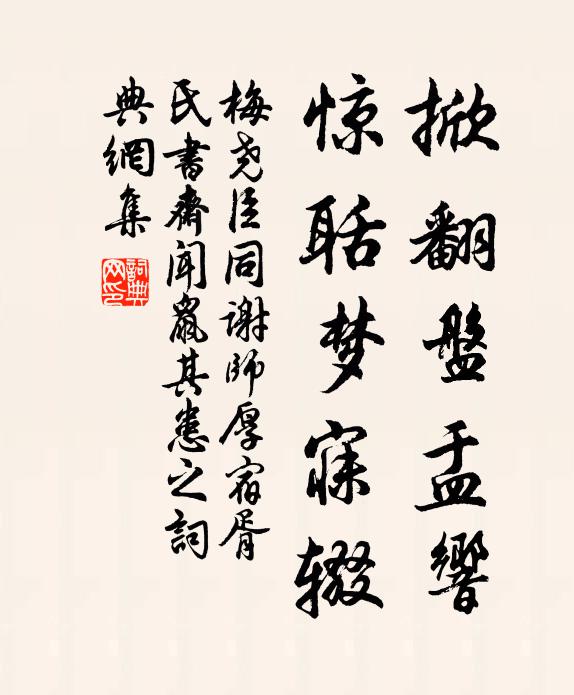 掀翻盤盂響
惊聒梦寐辍
梅尧臣同谢師厚宿胥
氏書齋闻鼠其患之詞
典網集
詞典
网印